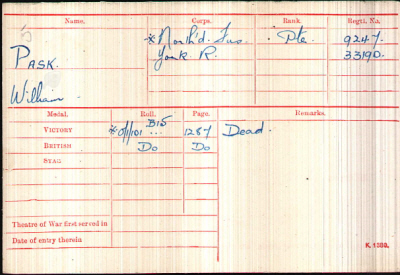 Name. Corps. Rank. Regtl. No.
Pask. *North'd. Fus. Pte 9247.
William York. R. 33190.
Medal. Roll. Page. Remarks.
Victory *O/1/101 B15 ... 1287 Dead.
British Do Do
Star
Theatre of War first served in
Date of entry therein
K. 1380.